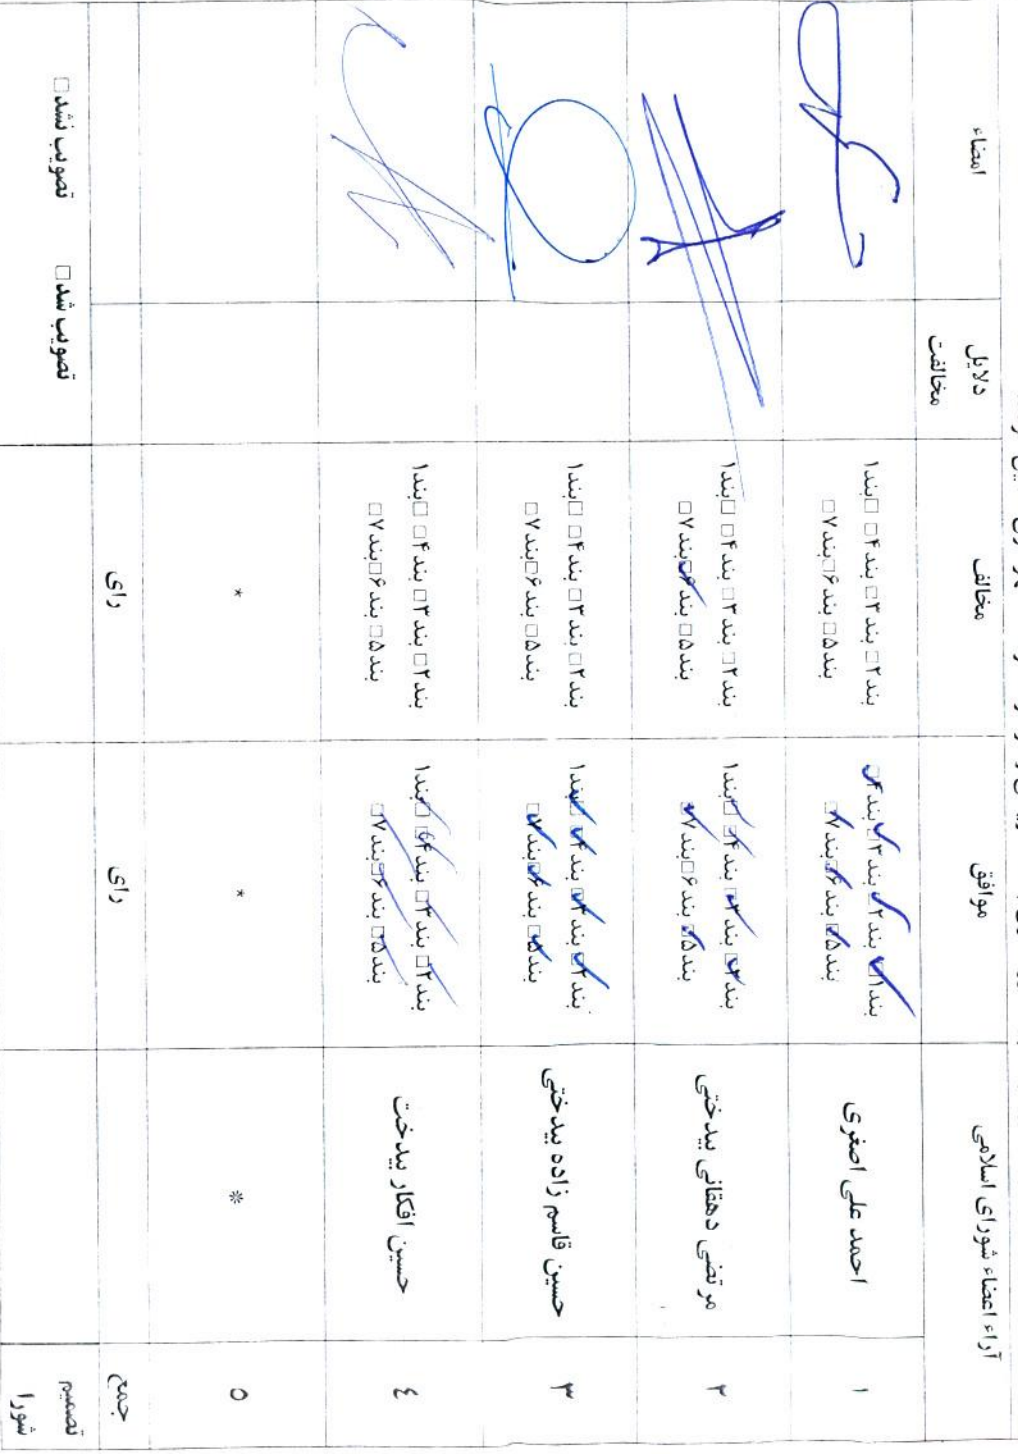 آراء اعضاء شورای اسلامی موافق مخالف دلایل مخالفت امضاء
۱ احمد علی اصغری
بند۱□ بند۲□ بند۳□ بند۴□
بند۵□ بند۶□ بند۷□
بند۱□ بند۲□ بند۳□ بند۴□
بند۵□ بند۶□ بند۷□
۲ مرتضی دهقانی بیدختی
بند۱□ بند۲□ بند۳□ بند۴□
بند۵□ بند۶□ بند۷□
بند۱□ بند۲□ بند۳□ بند۴□
بند۵□ بند۶□ بند۷□
۳ حسین قاسم زاده بیدختی
بند۱□ بند۲□ بند۳□ بند۴□
بند۵□ بند۶□ بند۷□
بند۱□ بند۲□ بند۳□ بند۴□
بند۵□ بند۶□ بند۷□
٤ حسین افکار بیدخت
بند۱□ بند۲□ بند۳□ بند۴□
بند۵□ بند۶□ بند۷□
بند۱□ بند۲□ بند۳□ بند۴□
بند۵□ بند۶□ بند۷□
۵ * * *
جمع رای رای
تصمیم شورا تصویب شد□ تصویب نشد□